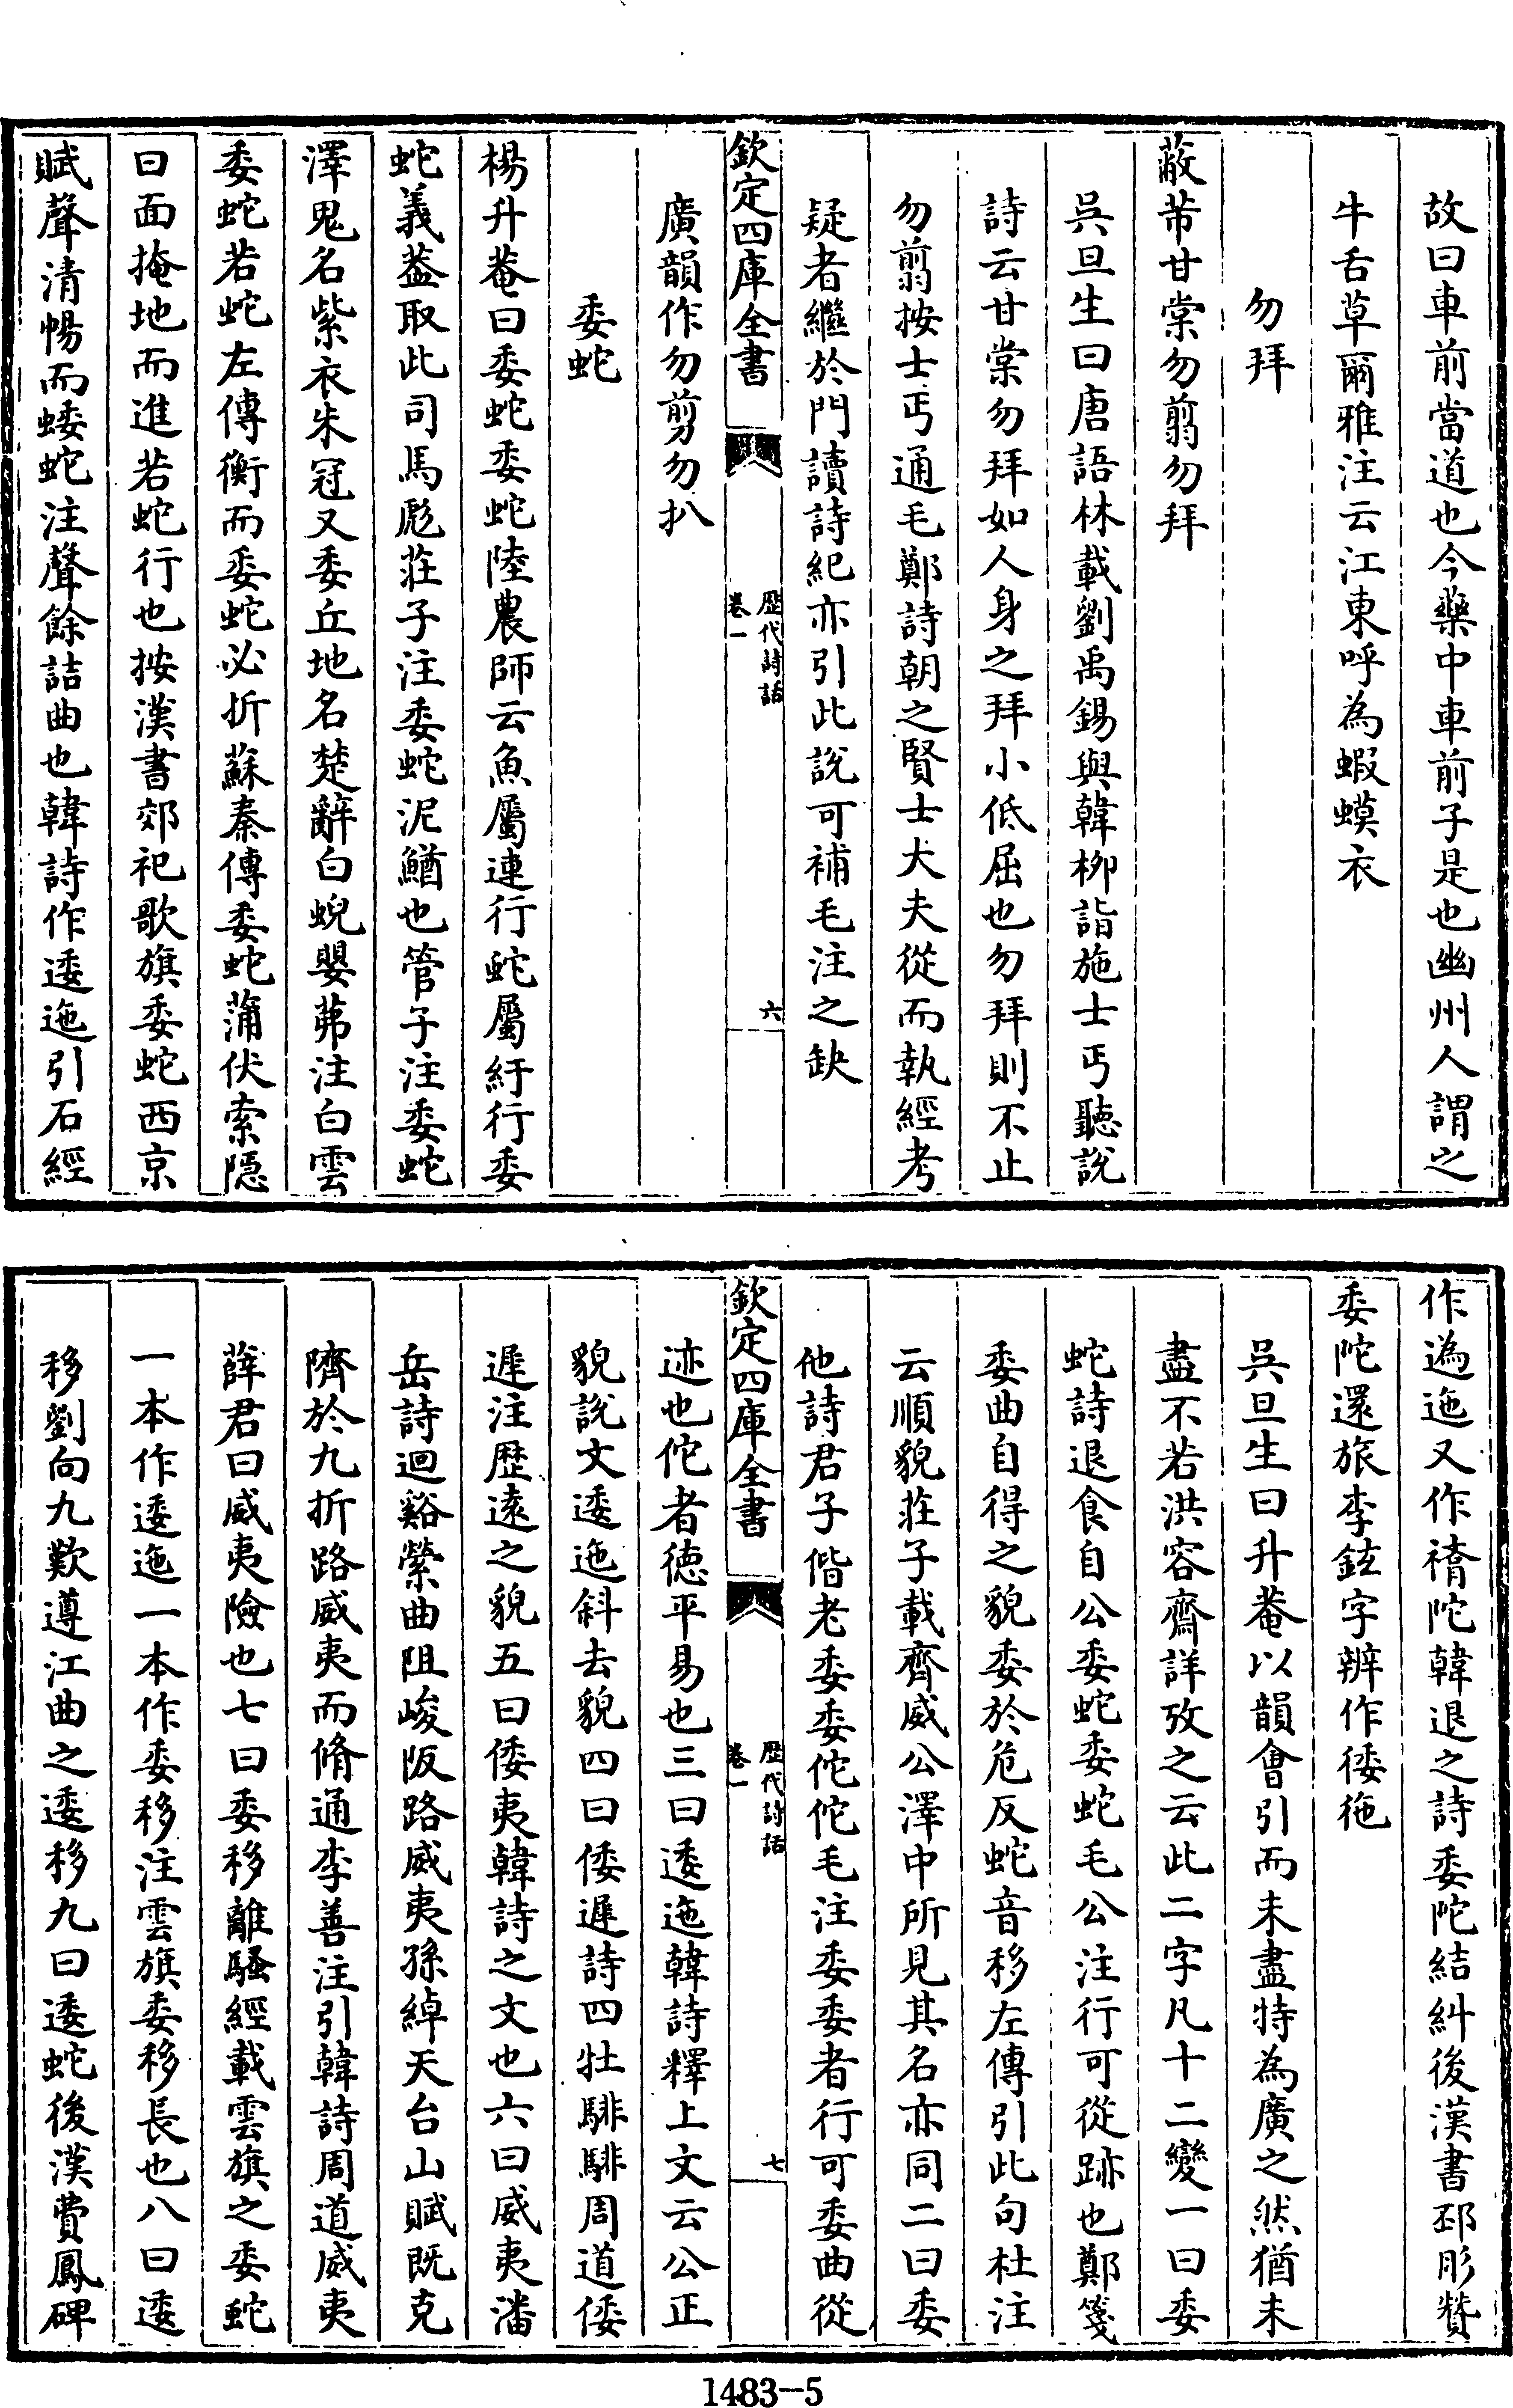 故曰車前當道也今藥中車前子是也幽州人謂之
牛舌草爾雅注云江東呼為蝦蟆衣
勿拜
蔽芾甘棠勿翦勿拜
吳旦生曰唐語林載劉禹錫與韓柳詣施士丐聽說
詩云甘棠勿拜如人身之拜小低屈也勿拜則不止
勿翦按士丐通毛鄭詩朝之賢士大夫從而執經考
疑者繼於門讀詩紀亦引此說可補毛注之缺
欽定四庫全書
歷代詩話
卷一
六
廣韻作勿剪勿扒
委蛇
楊升菴曰委蛇委蛇陸農師云魚屬連行蛇屬紆行委
蛇義葢取此司馬彪莊子注委蛇泥鰌也管子注委蛇
澤鬼名紫衣朱冠又委丘地名楚辭白蜺嬰茀注白雲
委蛇若蛇左傳衡而委蛇必折蘇秦傳委蛇蒲伏索隱
曰面掩地而進若蛇行也按漢書郊祀歌旗委蛇西京
賦聲清暢而蜲蛇注聲餘詰曲也韓詩作逶迤引石經
作逶迤又作䙿陀韓退之詩委陀結糾後漢書邳彤贊
委陀還旅李鉉字辨作倭袘
吳旦生曰升菴以韻會引而未盡特為廣之然猶未
盡不若洪容齋詳攷之云此二字凡十二變一曰委
蛇詩退食自公委蛇委蛇毛公注行可從跡也鄭箋
委曲自得之貌委於危反蛇音移左傳引此句杜注
云順貌莊子載齊威公澤中所見其名亦同二曰委
佗詩君子偕老委委佗佗毛注委委者行可委曲從
欽定四庫全書
歷代詩話
卷一
七
迹也佗者德平易也三曰逶迤韓詩釋上文云公正
貌說文逶迤斜去貌四曰倭遲詩四牡騑騑周道倭
遲注歷遠之貌五曰倭夷韓詩之文也六曰威夷潘
岳詩迴谿縈曲阻峻阪路威夷孫綽天台山賦既克
隮於九折路威夷而脩通李善注引韓詩周道威夷
薛君曰威夷險也七曰委移離騷經載雲旗之委蛇
一本作逶迤一本作委移注雲旗委移長也八曰逶
移劉向九歎遵江曲之逶移九曰逶蛇後漢費鳳碑
1483-5